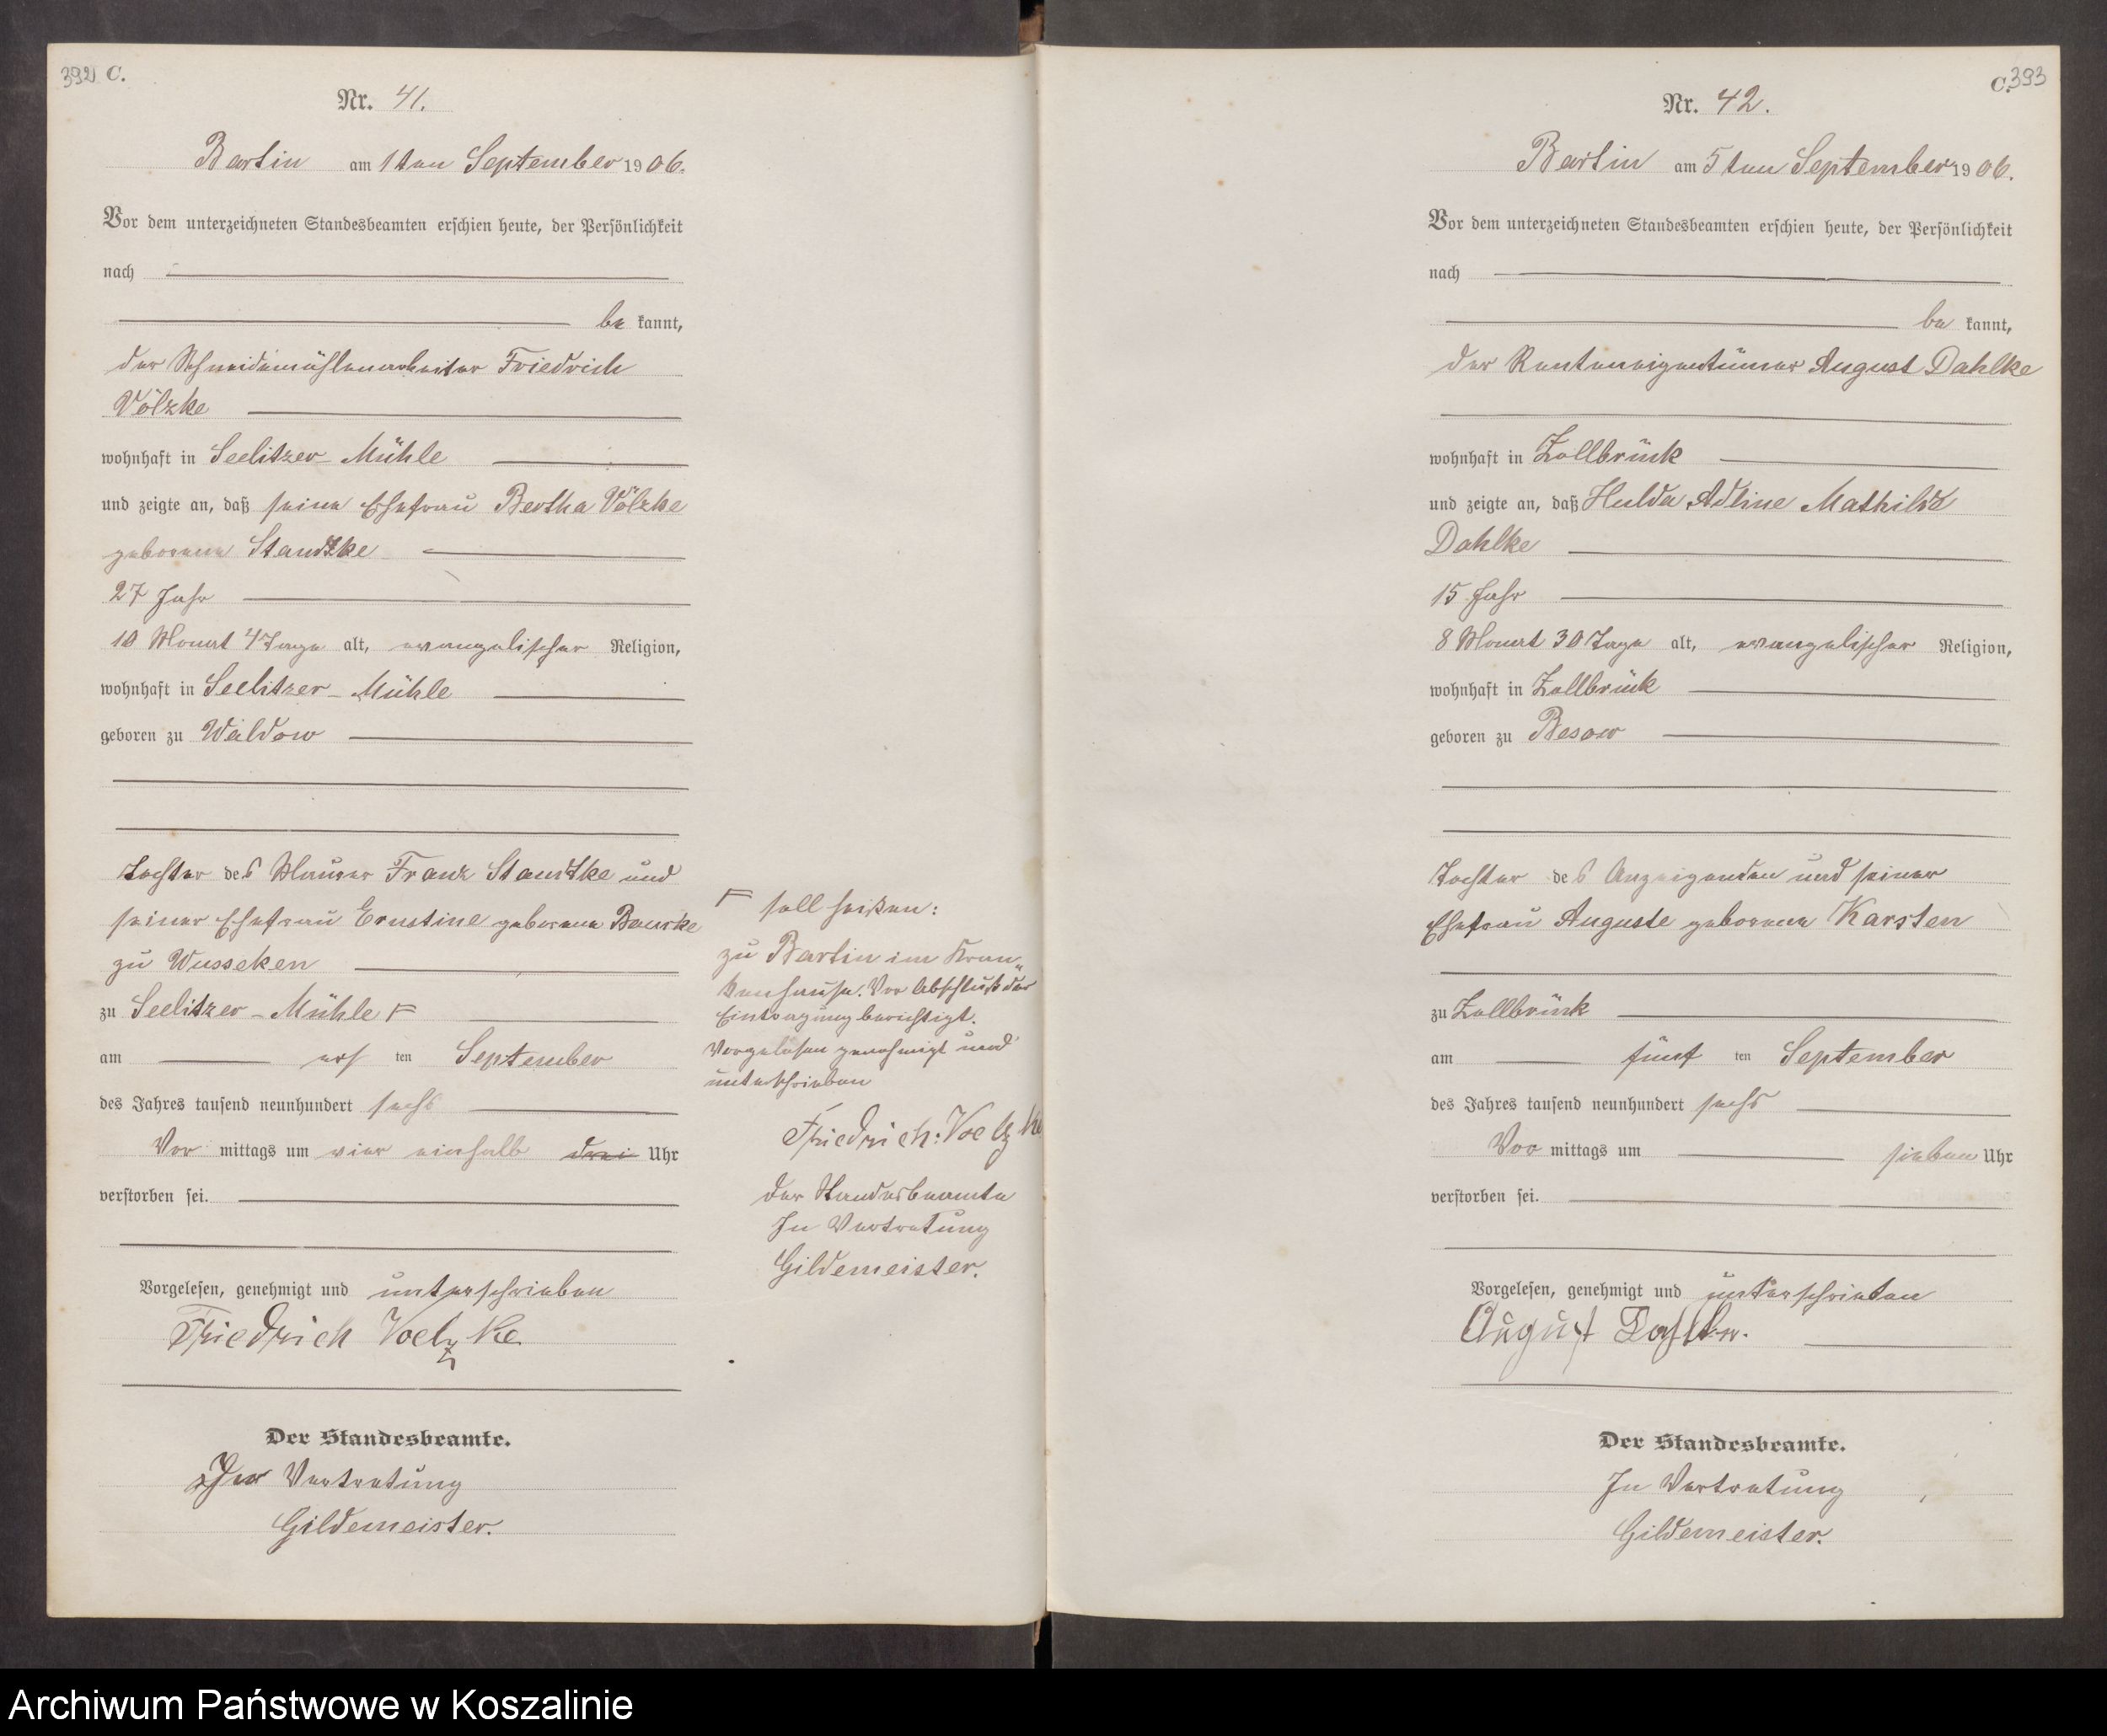 392 C.
Nr. 41.
Bartin am 1ten September 1906.
Vor dem unterzeichneten Standesbeamten erschien heute, der Persönlichkeit
nach
be kannt,
der Schneidemühlenarbeiter Friedrich
Völzke
wohnhaft in Seelitzer-Mühle
und zeigte an, daß seine Ehefrau Bertha Völzke
geborene
27 Jahr
10 Monat 4 Tage alt, evangelischer Religion,
wohnhaft in Seelitzer-Mühle
geboren zu Waldow
Tochter des Maurer Franz und
seiner Ehefrau Ernstine geborene
zu Wusseken
zu Seelitzer-Mühle F
am ersten September
des Jahres tausend neunhundert sechs
Vor mittags um vier einhalb drei Uhr
verstorben sei.
Vorgelesen, genehmigt und unterschrieben
Friedrich Voelzke
Der Standesbeamte.
In Vertretung
Gildemeister.
F soll heißen:
zu Bartin im Kran-
kenhause. Vor Abschluß der
Eintragung berichtigt.
Vorgelesen genehmigt und
unterschrieben
Friedrich Voelzke
Der Standesbeamte
In Vertretung
Gildemeister.
C. 393
Nr. 42.
Bartin am 5ten September 1906.
Vor dem unterzeichneten Standesbeamten erschien heute, der Persönlichkeit
nach
be kannt,
der Renteneigentümer August Dahlke
wohnhaft in Zollbrück
und zeigte an, daß Hulda Adline Mathilde
Dahlke
15 Jahr
8 Monat 30 Tage alt, evangelischer Religion,
wohnhaft in Zollbrück
geboren zu Besow
Tochter des Anzeigenden und seiner
Ehefrau Auguste geborene Karsten
zu Zollbrück
am fünf ten September
des Jahres tausend neunhundert sechs
Vor mittags um sieben Uhr
verstorben sei.
Vorgelesen, genehmigt und unterschrieben
August Dahlke.
Der Standesbeamte.
In Vertretung
Gildemeister.
Archiwum Państwowe w Koszalinie